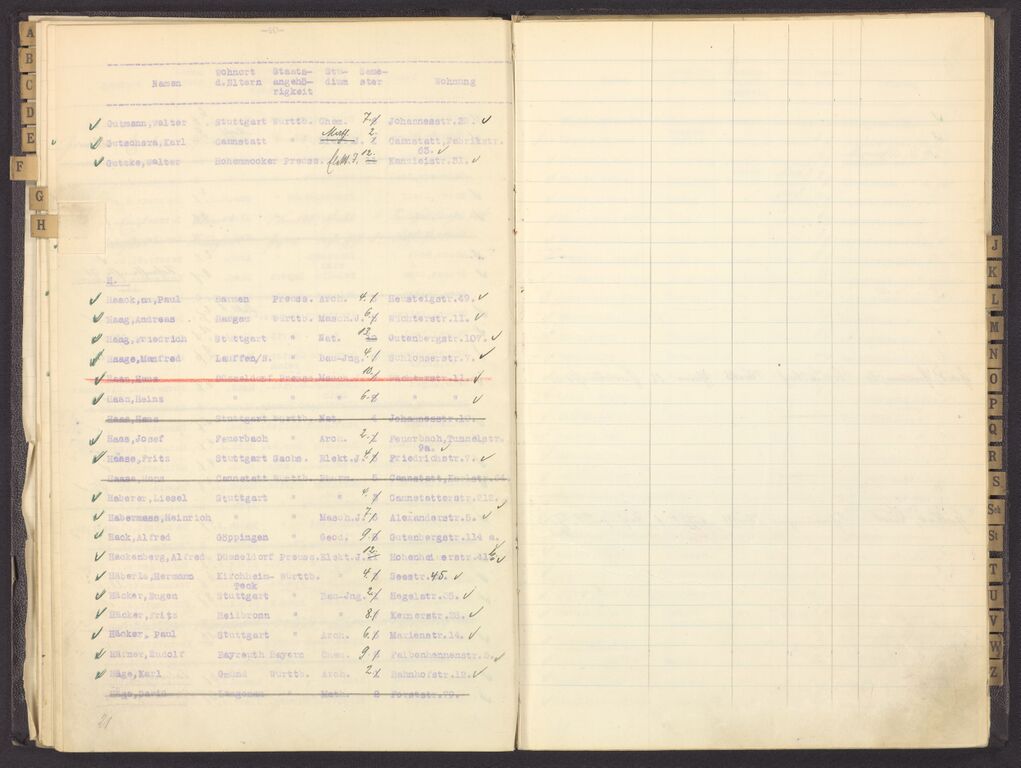 -20-
Namen Wohnort d.Eltern Staats-angehö-rigkeit Stu-dium Seme-ster Wohnung
Gutmann,Walter Stuttgart Württb. Chem. 7. Johannesstr.
Gutschera,Karl Cannstatt " Cannstatt,Fabrikstr.
63.
Guttke,Walter Hohenmocker Preuss. 12. Kanzleistr.31.
H.
Paul Preuss. Arch. 4. Heusteigstr.49.
Haag,Andreas Württb. Masch.J. 6. Wichterstr.11.
Haag,Friedrich Stuttgart " Nat. 13. Gutenbergstr.107.
Haage,Manfred Lauffen/N. " Bau-Jng. 4. Schlosserstr.7.
Haan,Hans Düsseldorf Preuss. Masch. 10. Wächterstr.11.
Haan,Heinz " " " 6. " "
Haas,Hans Stuttgart Württb. Nat. 4 Johannesstr.10.
Haas,Josef Feuerbach " Arch. 2. Feuerbach,Tunnelstr.
9a.
Haase,Fritz Stuttgart Sachs. Elekt.J. 4. Friedrichstr.7.
Haase,Hans Cannstatt Württb. 5 Cannstatt,Karlstr.
Haberer,Liesel Stuttgart " " 4. Cannstatterstr.212.
Habermaas,Heinrich " " Masch.J. 7. Alexanderstr.5.
Hack,Alfred Göppingen " Geod. 9. Gutenbergstr.114 a.
Hackenberg,Alfred Düsseldorf Preuss. Elekt.J. 12. Hohenheimerstr.
Häberle,Hermann Kirchheim- Württb. " 4. Seestr.45.
Teck
Häcker,Eugen Stuttgart " Bau-Jng. 2. Hegelstr.
Häcker,Fritz Heilbronn " " 8. Kernerstr.
Häcker, Paul Stuttgart " Arch. 6. Marienstr.14.
Häfner,Rudolf Bayreuth Bayern Chem. 9. Falbenhennenstr.
Häge,Karl Gmünd Württb. Arch. 2. Bahnhofstr.12.
Häge,David Langenau " Math. 8 Forststr.
21
A
B
C
D
E
F
G
H
J
K
L
M
N
O
P
Q
R
S
Sch
St
T
U
V
W
Z